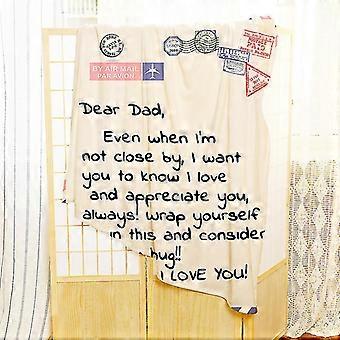 BY AIR MAIL
PAR AVION
Dear Dad,
Even when I'm
not close by, I want
you to know I love
and appreciate you,
always! Wrap yourself
in this and consider
hug!!
I LOVE YOU!